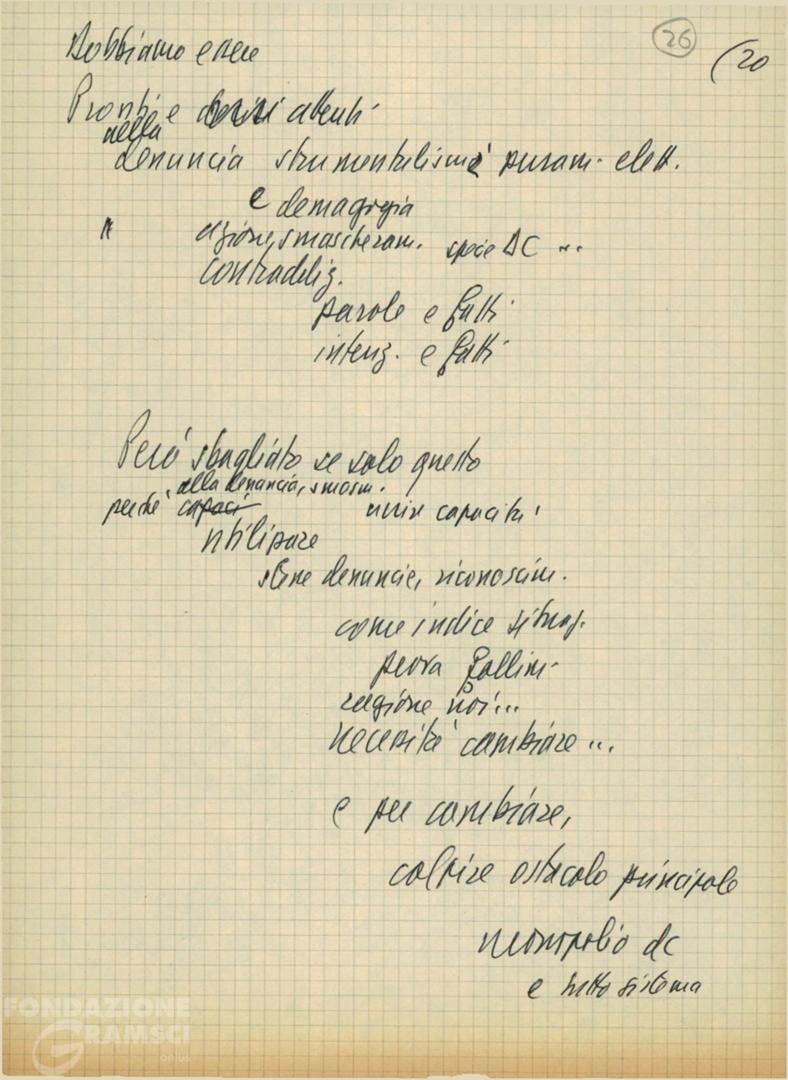 26
(20
Dobbiamo essere
Pronti e attenti
nella
denuncia strumentalismi puram. elett.
e demagogia
" azione smascheram. specie DC ...
contraddiz.
parole e fatti
intenz. e fatti
Però sbagliato se solo questo
alla denuncia, smasm.
perché capaci unire capacità
utilizzare
stesse denuncie, riconoscim.
come indice situaz.
prova fallim.
ragione noi...
necessità cambiare...
e per cambiare,
colpire ostacolo principale
monopolio dc
e suo sistema
FONDAZIONE
GRAMSCI
onlus